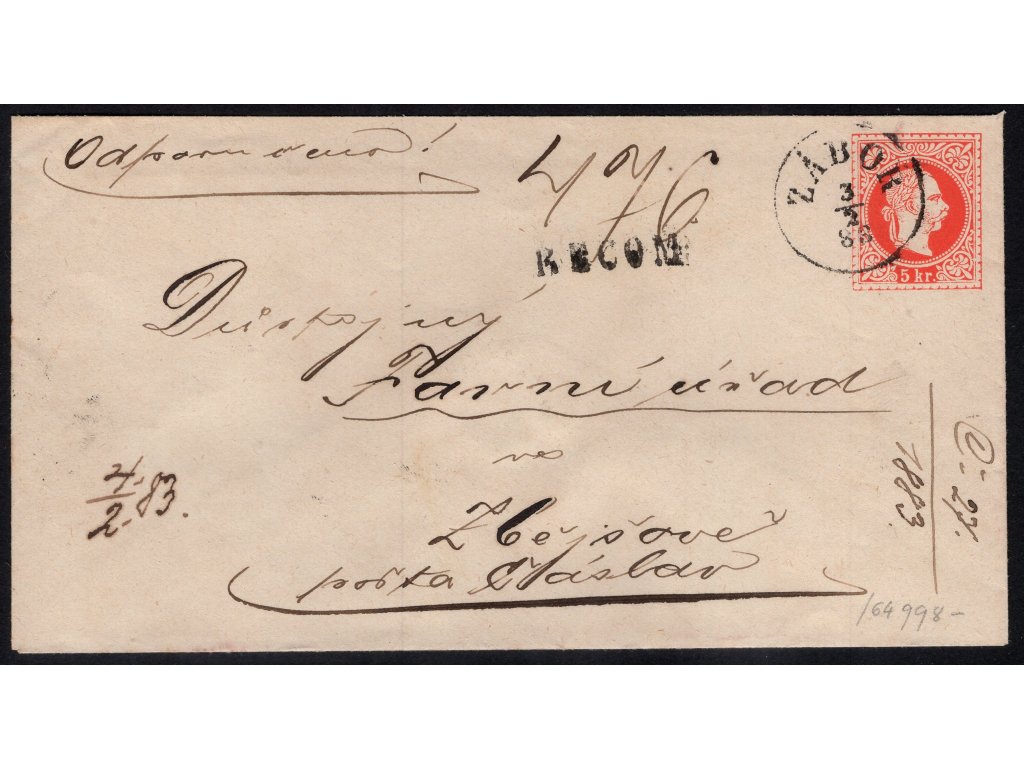 Odporučeno!
476
RECOM
ZÁBOŘ
3/2
83
5 kr.
Důstojný
Farní úřad
ve
Zbějšově
pošta Čáslav
4./2. 83.
Č. 27.
1883
164 998-